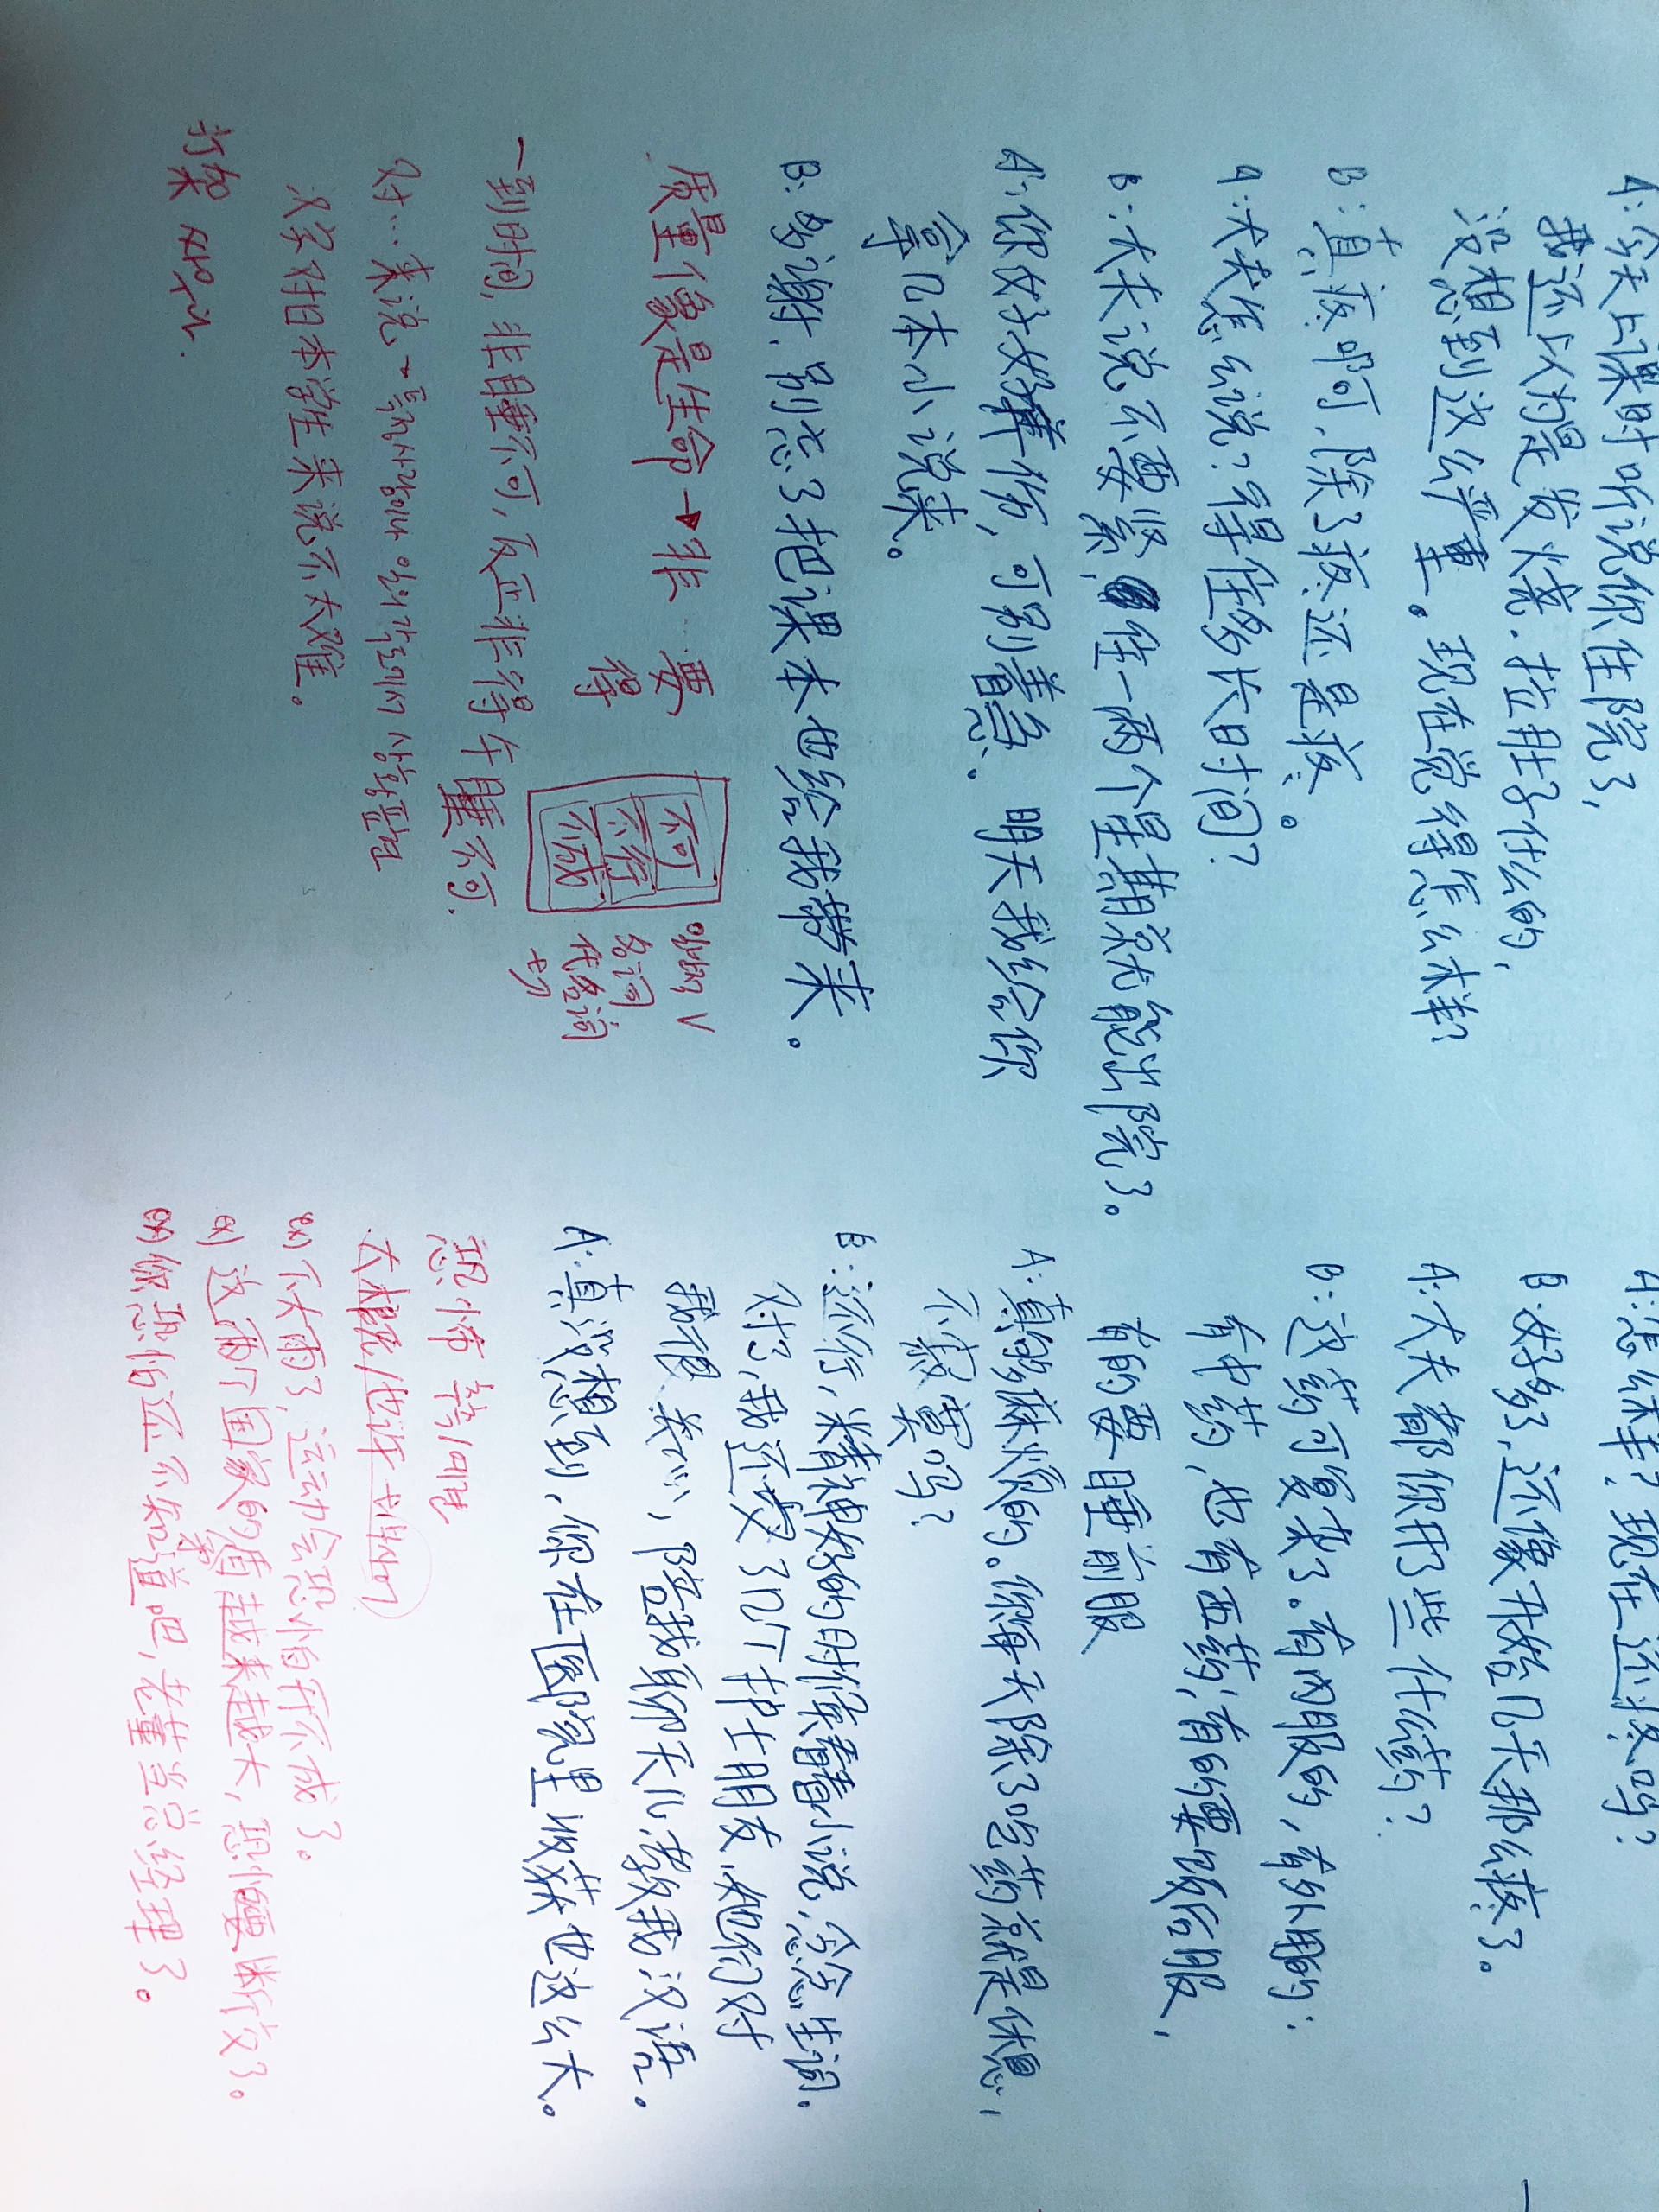 A: 今天上课时听说你住院了,
我还以为是发烧、拉肚子什么的,
没想到这么严重。现在觉得怎么样?
B: 真疼啊, 除了疼还是疼。
A: 大夫怎么说? 得住多长时间?
B: 大夫说不要紧, 住一两个星期就能出院了。
A: 你好好养伤, 可别着急。明天我给你
拿几本小说来。
B: 多谢, 别忘了把课本也给我带来。
质量像是生命 → 非 … 要
得
不可
不行
不成
V
名词
代名词
一到时间, 非睡不可, 反正非得午睡不可.
对…来说 →
汉字对日本学生来说不太难。
打架 싸우다.
A: 怎么样? 现在还疼吗?
B: 好多了, 还像开始几天那么疼了。
A: 大夫都你用了些什么药?
B: 这药可复杂了。有内服的, 有外服的;
有中药, 也有西药; 有的要饭后服,
有的要睡前服
A: 真够麻烦的。你每天除了吃药就是休息,
不寂寞吗?
B: 还行, 精神好的时候看看小说, 念念生词.
对了, 我还交了几个护士朋友, 她们对
我很关心, 陪我聊天儿, 教我汉语。
A: 真没想到, 你在医院里收获也这么大。
恐怕
大概/也许
ex) 下大雨了, 运动会恐怕开不成了。
ex) 这两个国家的矛盾越来越大, 恐怕要断交了。
ex) 你恐怕还不知道吧, 老董当总经理了。